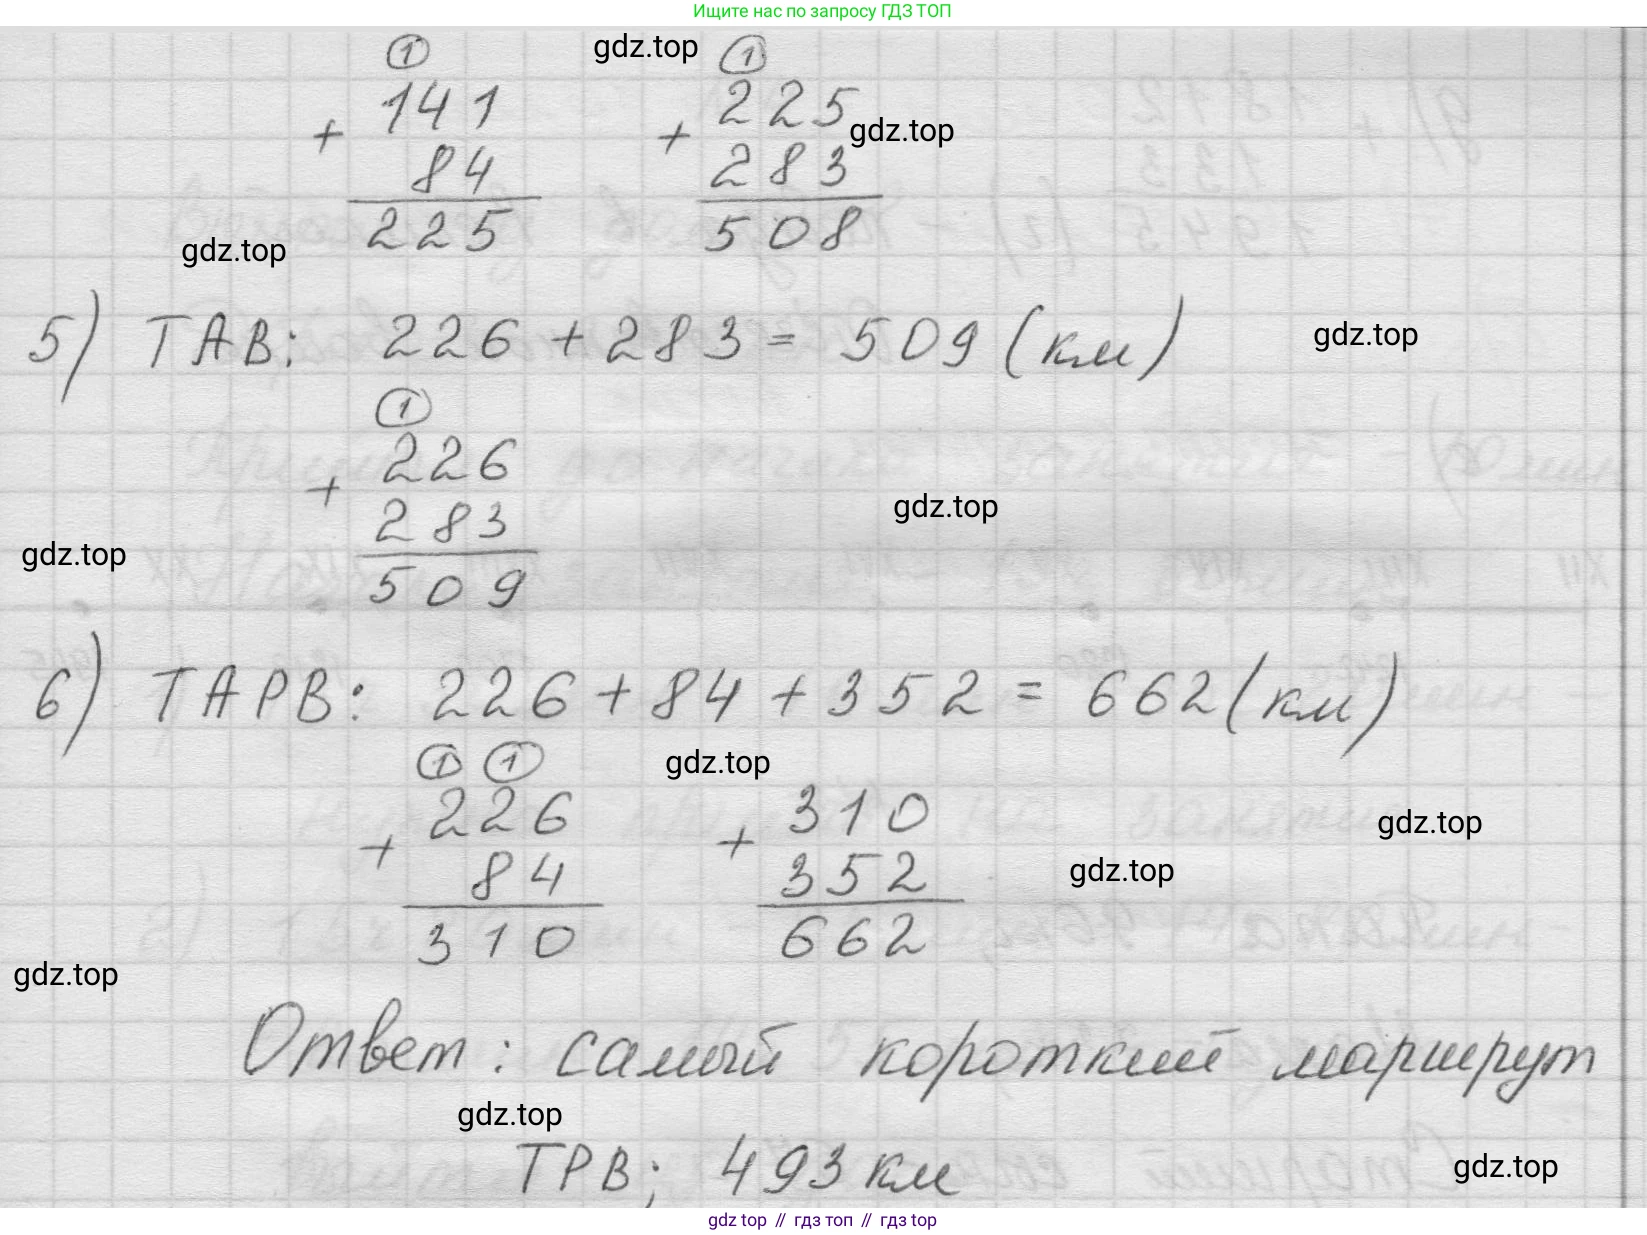 Ищите нас по запросу ГДЗ ТОП
gdz.top
① ①
141 225
+ +
gdz.top
84 283
225 508
gdz.top
5) ТАВ: 226 + 283 = 509 (км)
gdz.top
①
226
+
283
gdz.top
gdz.top
509
6) ТАРВ: 226 + 84 + 352 = 662 (км)
① ①
gdz.top
226 310
+ +
gdz.top
84 352
gdz.top
310 662
gdz.top
Ответ: самый короткий маршрут
gdz.top
ТРВ; 493 км
gdz.top
gdz top // гдз топ // гдз top